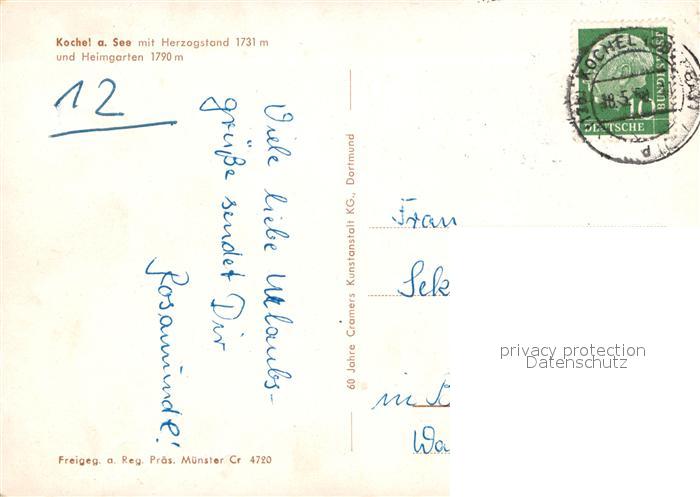 Kochel a. See mit Herzogstand 1731 m
und Heimgarten 1790 m
12
Viele liebe Urlaubs-
grüße sendet Dir
Rosamunde!
60 Jahre Cramers Kunstanstalt KG., Dortmund
Freigeg. a. Reg. Präs. Münster Cr 4720
KOCHEL
18.5.
10
DEUTSCHE
BUNDESPOST
Frau
Sek
in
Wa
privacy protection
Datenschutz